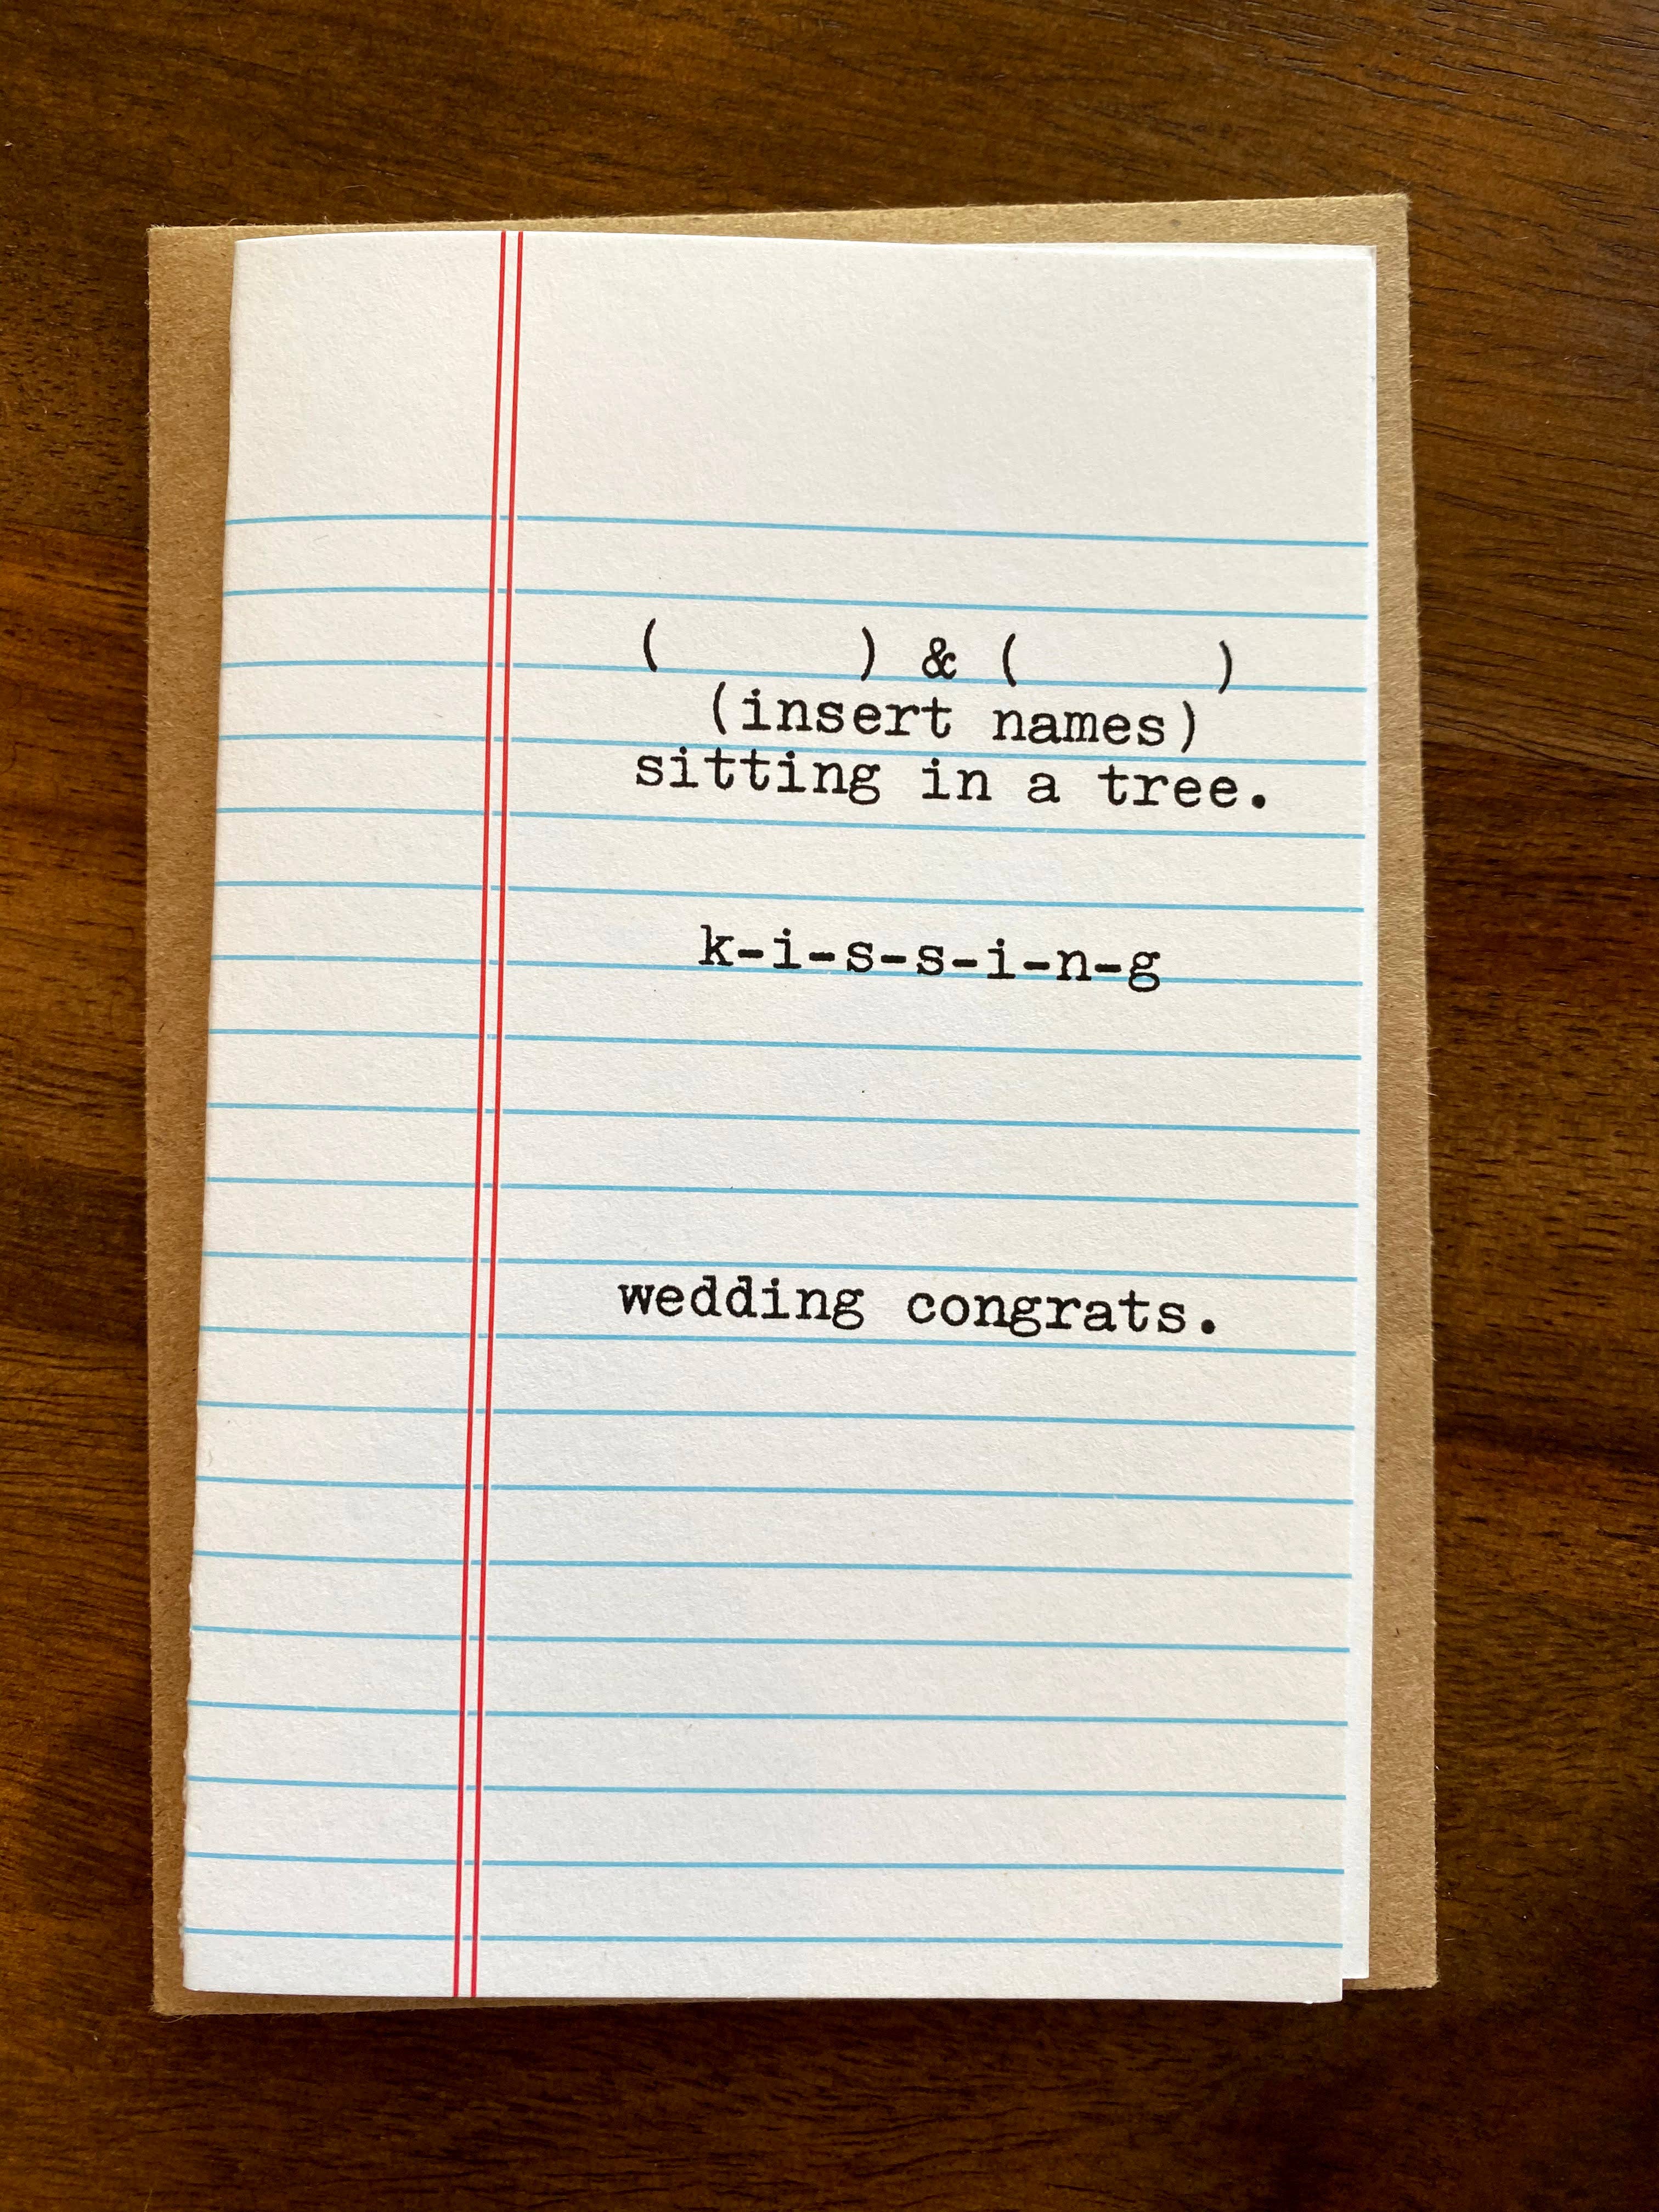 (      ) & (      )
(insert names)
sitting in a tree.
k-i-s-s-i-n-g
wedding congrats.